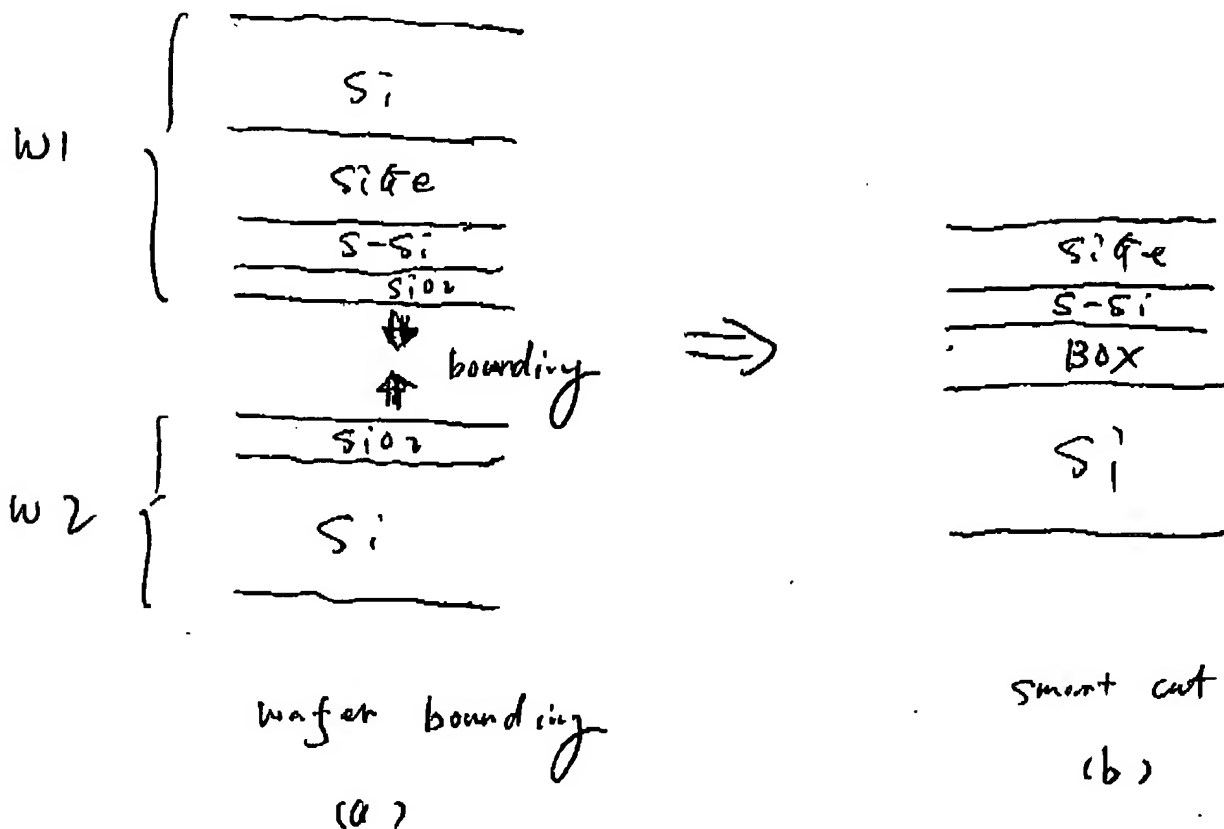 Si
W1
SiGe
S-Si
SiO2
bounding
SiO2
W2
Si
wafer bounding
(a)
SiGe
S-Si
BOX
Si
smart cut
(b)